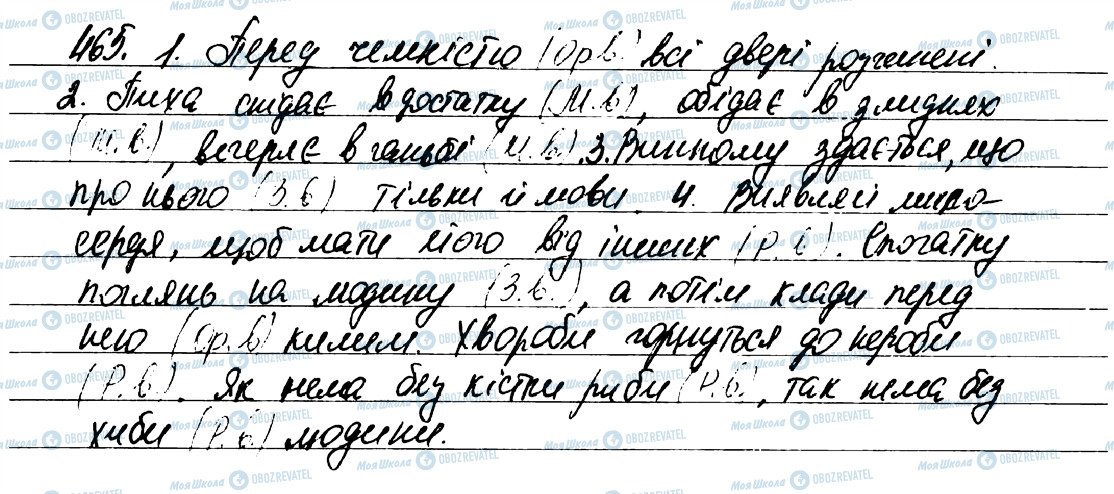 465. 1. Перед чемністю (Ор.в) всі двері розчинені.
2. Пиха снідає в достатку (М.в), обідає в злиднях
(М.в), вечеряє в ганьбі (М.в). 3. Винному здається, що
про нього (З.в) тільки й мови. 4. Виявляй мило-
сердя, щоб мати його від інших (Р.в). Спочатку
поглянь на людину (З.в.), а потім клади перед
нею (Ор.в) килим. Хвороби горнуться до нероби
(Р.в). Як нема без кістки риби (Р.в), так нема без
хиби (Р.в) людини.